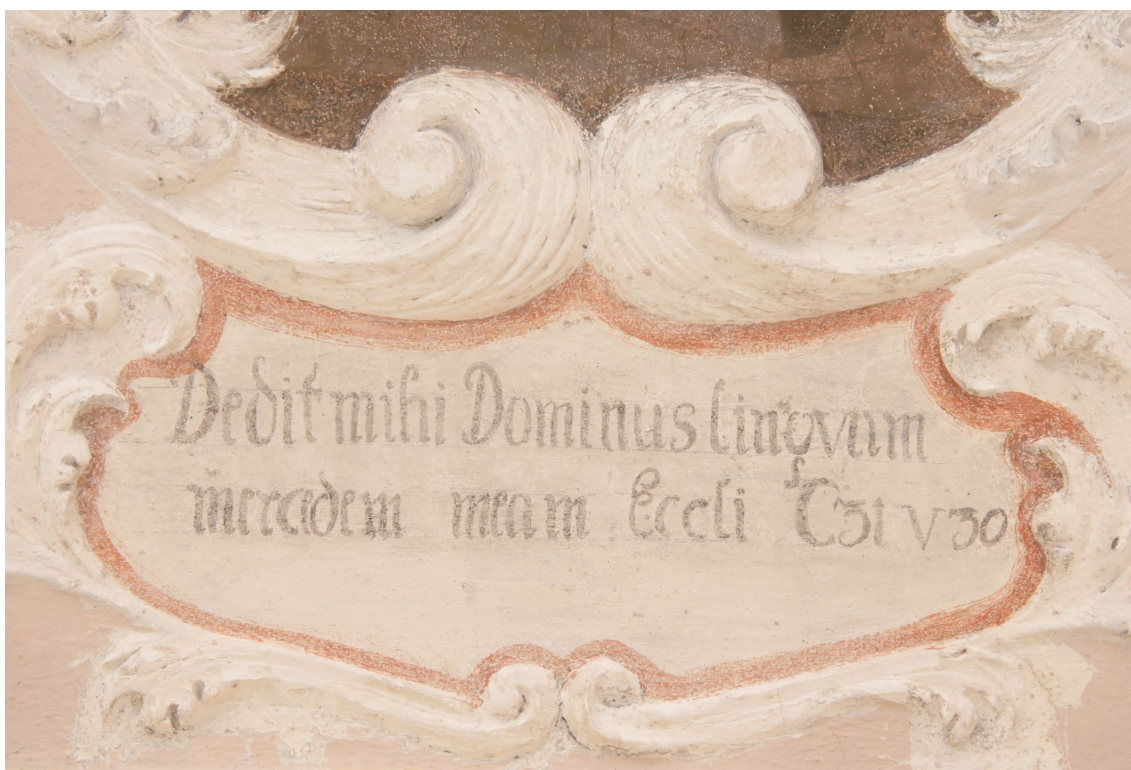 Dedit mihi Dominus lingvam
mercedem meam Eccli C 31 v 30